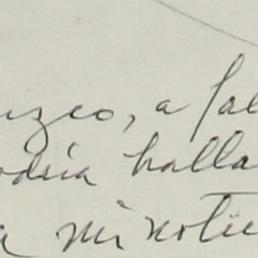 uzco, a fal
odría halla
a mi notic